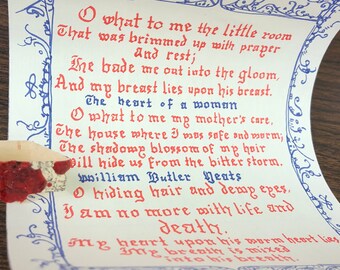 O what to me the little room
That was brimmed up with prayer
and rest;
He bade me out into the gloom,
And my breast lies upon his breast.
The heart of a woman
O what to me my mother's care,
The house where I was safe and warm;
The shadowy blossom of my hair
Will hide us from the bitter storm.
William Butler Yeats
O hiding hair and dewy eyes,
I am no more with life and
death.
My heart upon his warm heart lies
My breath is mixed
into his breath.